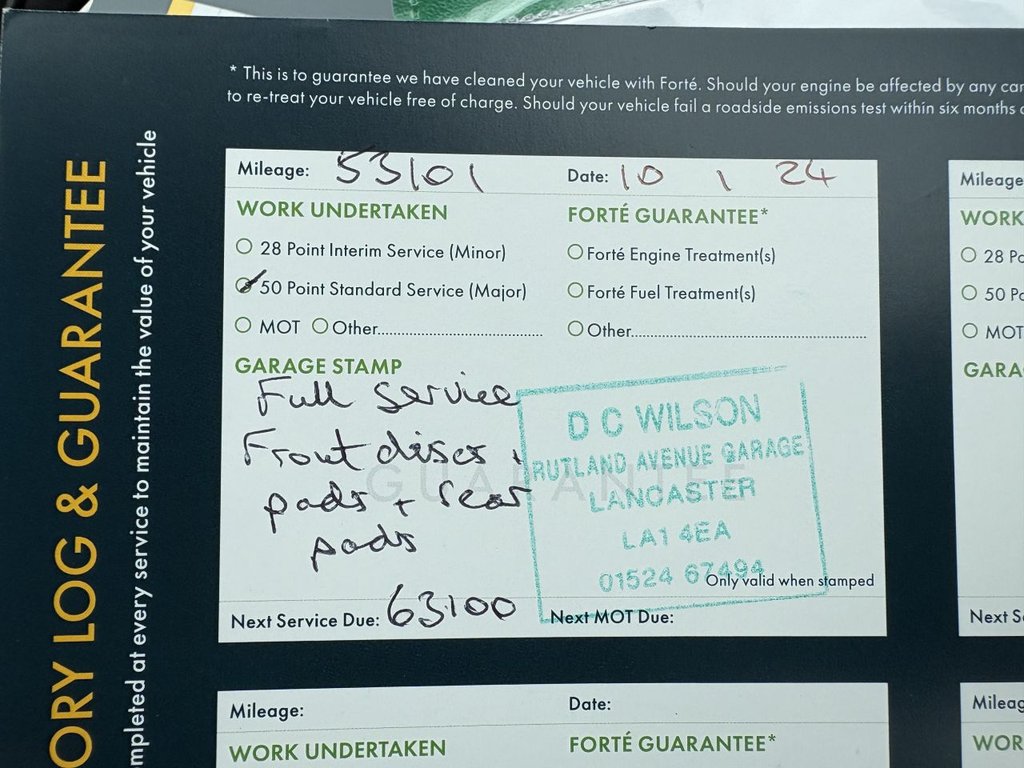 * This is to guarantee we have cleaned your vehicle with Forté. Should your engine be affected by any car
to re-treat your vehicle free of charge. Should your vehicle fail a roadside emissions test within six months
ORY LOG & GUARANTEE
mpleted at every service to maintain the value of your vehicle
Mileage: 53101 Date: 10 1 24
WORK UNDERTAKEN FORTÉ GUARANTEE*
28 Point Interim Service (Minor) Forté Engine Treatment(s)
50 Point Standard Service (Major) Forté Fuel Treatment(s)
MOT Other Other
GARAGE STAMP
Full service
Front discs +
pads + rear
pads
GUARANTEE
D C WILSON
RUTLAND AVENUE GARAGE
LANCASTER
LA1 4EA
01524 67494
Only valid when stamped
Next Service Due: 63100 Next MOT Due:
Mileage
WORK
28 Po
50 Po
MOT
GARA
Next S
Mileage: Date:
WORK UNDERTAKEN FORTÉ GUARANTEE*
Mileag
WOR